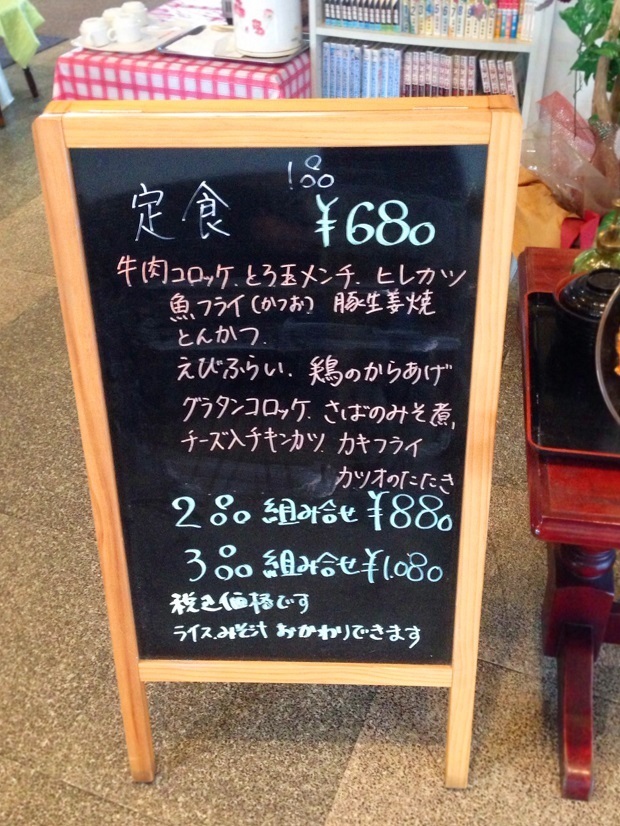 1品
定食 ¥680
牛肉コロッケ、とろ玉メンチ、ヒレカツ
魚フライ(かつお) 豚生姜焼
とんかつ、
えびふらい、鶏のからあげ
グラタンコロッケ、さばのみそ煮、
チーズ入チキンカツ、カキフライ
カツオのたたき
2品 組み合せ ¥880
3品 組み合せ ¥1,080
税込価格です
ライス、みそ汁 おかわりできます